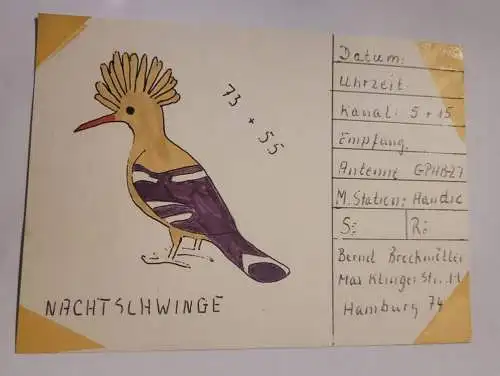 73 + 55
NACHTSCHWINGE
Datum:
Uhrzeit:
Kanal: 5 + 15
Empfang:
Antenne GPHB27
M. Station: Handic
S: R:
Bernd Brechmüller
Max Klinger Str.
Hamburg 74